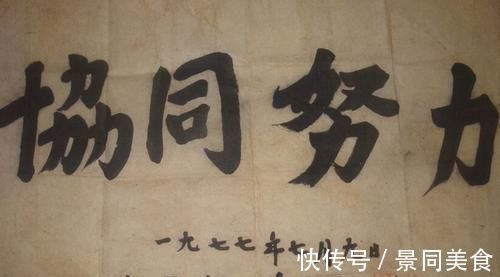 協同努力
一九七七年七月九日
快传号／景同美食